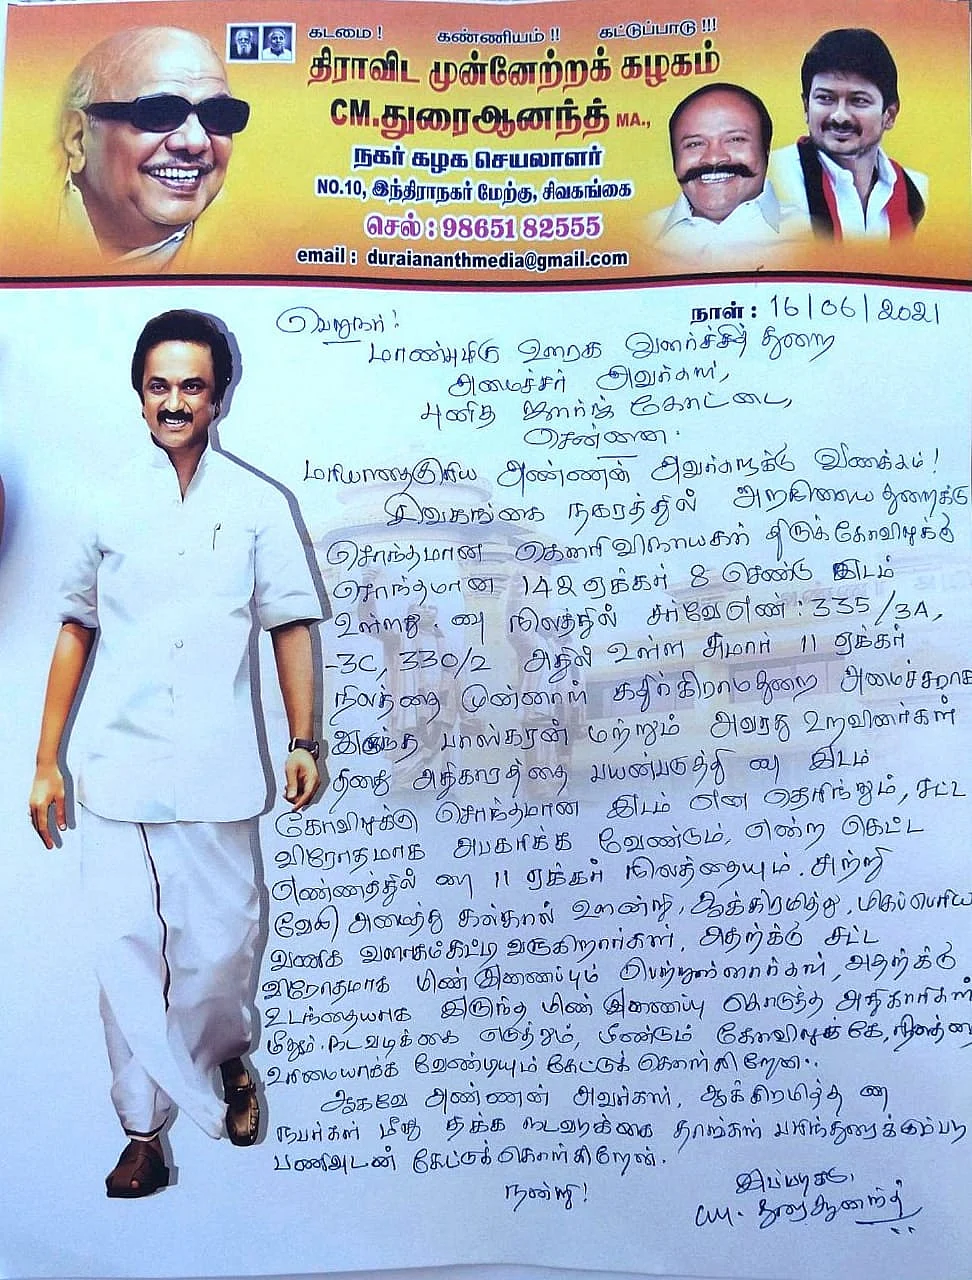 கடமை ! கண்ணியம் !! கட்டுப்பாடு !!!
திராவிட முன்னேற்றக் கழகம்
CM.துரைஆனந்த் MA.,
நகர் கழக செயலாளர்
NO.10, இந்திராநகர் மேற்கு, சிவகங்கை
செல் : 98651 82555
email : duraiananthmedia@gmail.com
நாள் : 16/06/2021
பெறுநர்!
மாண்புமிகு ஊரக வளர்ச்சித் துறை
அமைச்சர் அவர்கள்,
புனித ஜார்ஜ் கோட்டை,
சென்னை.
மரியாதைகுரிய அண்ணன் அவர்களுக்கு வணக்கம்!
சிவகங்கை நகரத்தில் அறநிலைய துறைக்கு
சொந்தமான கௌரிவிநாயகர் திருக்கோவிலுக்கு
சொந்தமான 142 ஏக்கர் 8 செண்டு இடம்
உள்ளது. நிலத்தில் சர்வேஎண் : 335/3A,
-3C, 330/2 அதில் உள்ள சுமார் 11 ஏக்கர்
நிலத்தை முன்னாள் கதர்கிராமதுறை அமைச்சராக
இருந்த பாஸ்கரன் மற்றும் அவரது உறவினர்கள்
தனது அதிகாரத்தை பயன்படுத்தி இடம்
கோவிலுக்கு சொந்தமான இடம் என தெரிந்தும், சட்ட
விரோதமாக அபகரிக்க வேண்டும், என்ற கெட்ட
எண்ணத்தில் 11 ஏக்கர் நிலத்தையும். சுற்றி
வேலி அமைத்து கல்கால் ஊன்றி, ஆக்கிரமித்து, மிகப்பெரிய
வணிக வளாகம்கட்டி வருகிறார்கள். அதற்க்கு சட்ட
விரோதமாக மின் இணைப்பும் பெற்றுள்ளார்கள், அதற்க்கு
உடந்தையாக இருந்த மின் இணைப்பு கொடுத்த அதிகாரிகள்
மீதும். நடவடிக்கை எடுத்தும், மீண்டும் கோவிலுக்கே,
உரிமையாக்க வேண்டியும் கேட்டுக் கொள்கிறேன்..
ஆகவே அண்ணன் அவர்கள், ஆக்கிரமித்த
நபர்கள் மீது தக்க நடவடிக்கை தாங்கள்
பணிவுடன் கேட்டுக் கொள்கிறேன்.
நன்றி!
இப்படிக்கு,
CM. துரைஆனந்த்